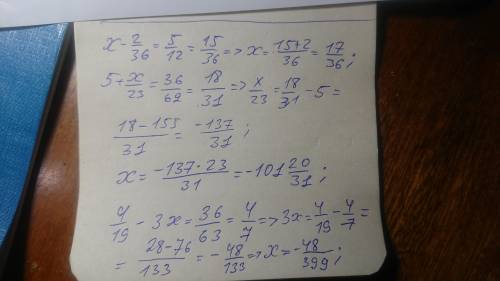 x - 2/36 = 5/12 = 15/36 => x = 15+2/36 = 17/36;
5 + x/23 = 36/62 = 18/31 => x/23 = 18/31 - 5 =
18-155/31 = -137/31;
x = -137·23/31 = -101 20/31;
4/19 - 3x = 36/63 = 4/7 => 3x = 4/19 - 4/7 =
= 28-76/133 = -48/133 => x = -48/399;